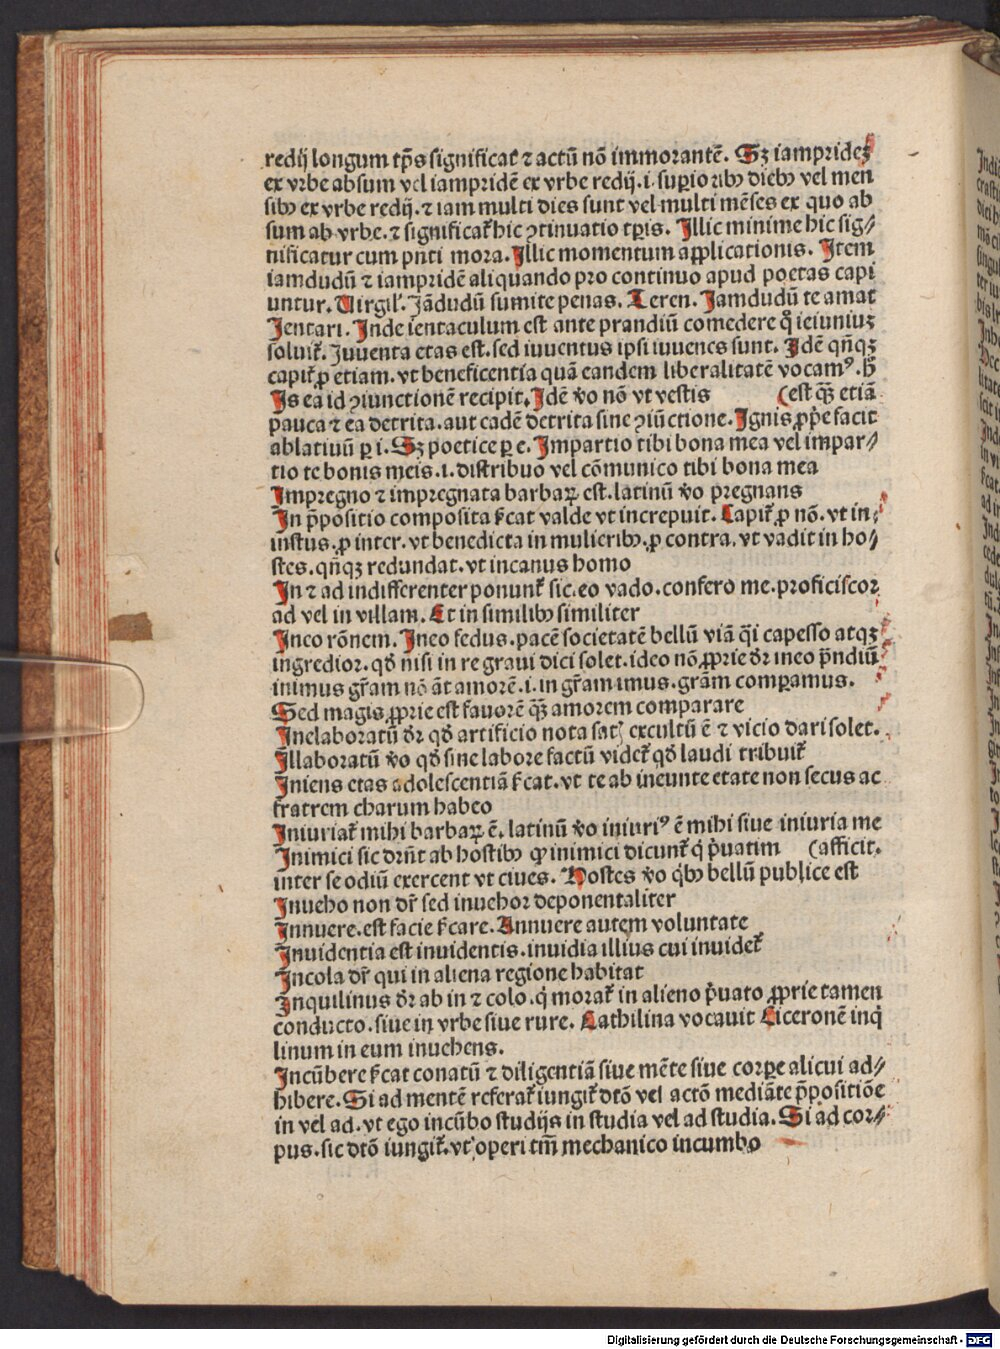 redij longum tp̄s significat ⁊ actū nō immorantē. Sꝫ iamprideꝫ
ex vrbe absum vel iampridē ex vrbe redij .i. superioribꝰ diebꝰ vel men
sibꝰ ex vrbe redij. ⁊ iam multi dies sunt vel multi mēses ex quo ab
sum ab vrbe. ⁊ significat̄ hic ꝯtinuatio tp̄is. Illic minime hic sig⸗
nificatur cum pn̄ti mora. Illic momentum applicationis. Item
iamdudū ⁊ iampridē aliquando pro continuo apud poetas capi
untur. Uirgil'. Jādudū sumite penas. Teren. Jamdudū te amat
Jentari. Inde ientaculum est ante prandiū comedere q̊ ieiuniuꝫ
soluit̄. Juuenta etas est. sed iuuentus ipsi iuuenes sunt. Idē qn̄qꝫ
capit̄ ꝓ etiam. vt beneficentia quā eandem liberalitatē vocamꝰ.
Is ea id ꝯiunctionē recipit. Idē v̊o nō vt vestis (est qꝫ̄ etiā
pauca ⁊ ea detrita. aut cadē detrita sine ꝯiūctione. Ignis ꝓp̄e facit
ablatiuū ꝑ i. Sꝫ poetice ꝑ e. Impartio tibi bona mea vel impar⸗
tio te bonis meis .i. distribuo vel cōmunico tibi bona mea
Impregno ⁊ impregnata barbaꝝ est. latinū v̊o pregnans
In p̄positio composita s̄cat valde vt increpuit. Capit̄ ꝓ nō. vt in⸗
iustus. ꝓ inter. vt benedicta in mulieribꝰ. ꝓ contra. vt vadit in ho⸗
stes. qn̄qꝫ redundat. vt incanus homo
In ⁊ ad indifferenter ponunt̄ sic. eo vado. confero me. proficiscor
ad vel in villam. Et in similibꝰ similiter
Ineo rōnem. Ineo fedus. pacē societatē bellū viā q̄i capesso atqꝫ
ingredior. qd̄ nisi in re graui dici solet. ideo nō ꝓprie dr̄ ineo p̄ndiū
inimus gr̄am nō āt amorē .i. in gr̄am imus. grām comparamus.
Sed magis ꝓprie est fauorē qꝫ̄ amorem comparare
Inelaboratū dr̄ qd̄ artificio nota excultū ē ⁊ vicio dari solet.
Illaboratū v̊o qd̄ sine labore factū videt̄ qd̄ laudi tribuit̄
Iniens etas adolescentiā s̄cat. vt te ab ineunte etate non secus ac
fratrem charum habeo
Iniuriat̄ mihi barbaꝝ ē. latinū v̊o iniuriꝰ ē mihi siue iniuria me
Inimici sic dn̄t ab hostibꝰ ꝙ inimici dicunt̄ q̇ p̄uatim (afficit.
inter se odiū exercent vt ciues. Hostes v̊o q̇bꝰ bellū publice est
Inueho non dr̄ sed inuehor deponentaliter
Innuere. est facie s̄care. Annuere autem voluntate
Inuidentia est inuidentis. inuidia illius cui inuidet̄
Incola dr̄ qui in aliena regione habitat
Inquilinus dr̄ ab in ⁊ colo. q̇ morat̄ in alieno p̄uato ꝓprie tamen
conducto. siue in vrbe siue rure. Cathilina vocauit Ciceronē inq̇
linum in eum inuehens.
Incūbere s̄cat conatū ⁊ diligentiā siue mēte siue corpe alicui ad⸗
hibere. Si ad mentē referat̄ iungit̄ dtō vel actō mediāte p̄positiōe
in vel ad. vt ego incūbo studijs in studia vel ad studia. Si ad cor⸗
pus. sic dtō iungit̄. vt operi tm̄ mechanico incumbo
Digitalisierung gefördert durch die Deutsche Forschungsgemeinschaft - DFG